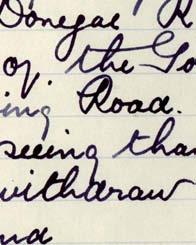 Donegal R
of. the So
ing Road.
seeing than
withdraw
nd